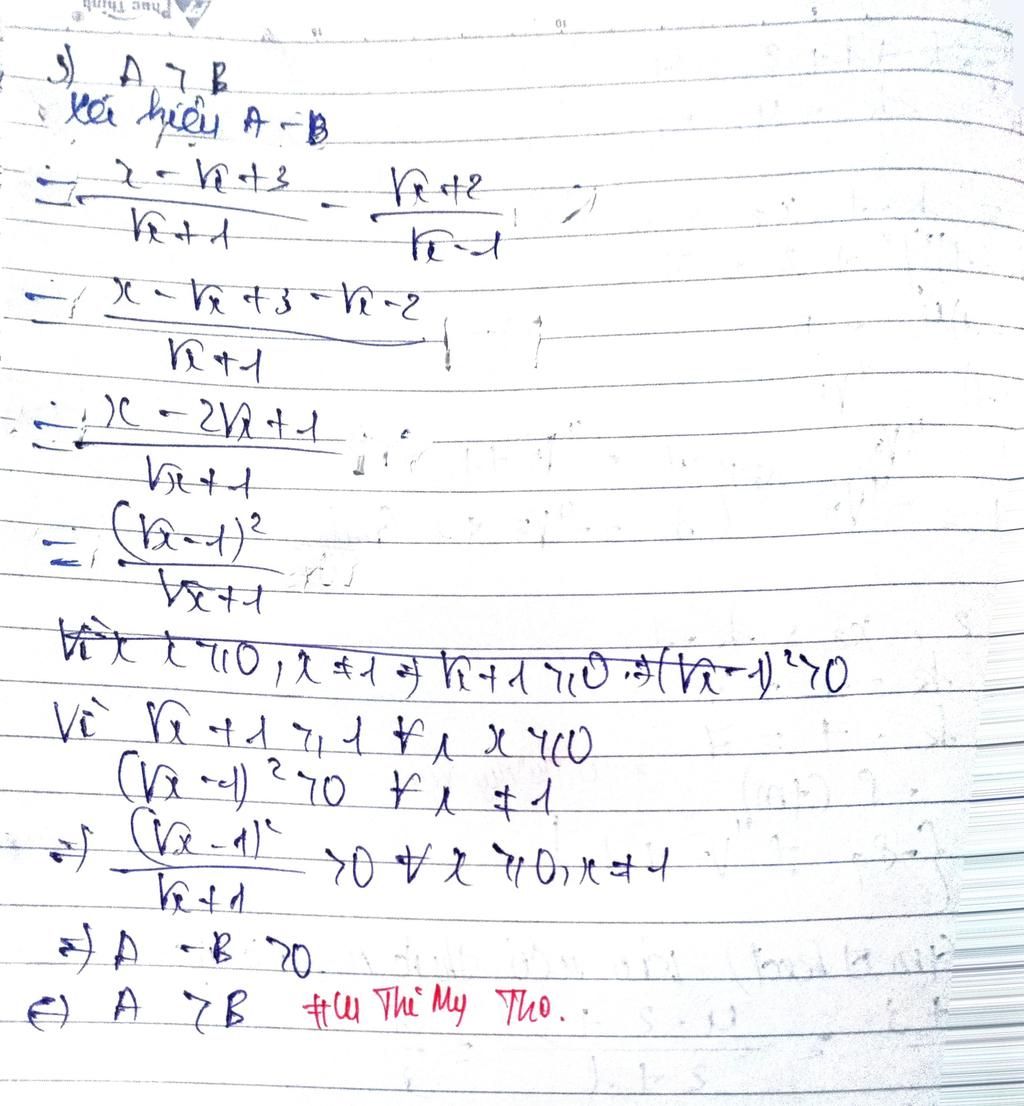 Phúc Thịnh
5
10
15
3) A > B
Xét hiệu A - B
= (x - √x + 3)/(√x + 1) - (√x + 2)/(√x - 1)
= (x - √x + 3 - √x - 2)/(√x + 1)
= (x - 2√x + 1)/(√x + 1)
= (√x - 1)²/(√x + 1)
Vì x ≥ 0, x ≠ 1 ⇒ √x + 1 ≥ 0 ⇒ (√x - 1)² > 0
Vì √x + 1 ≥ 1 ∀ x ≥ 0
(√x - 1)² > 0 ∀ x ≠ 1
⇒ (√x - 1)²/(√x + 1) > 0 ∀ x ≥ 0, x ≠ 1
⇒ A - B > 0
⇔ A > B
Thi Mỹ Tho.